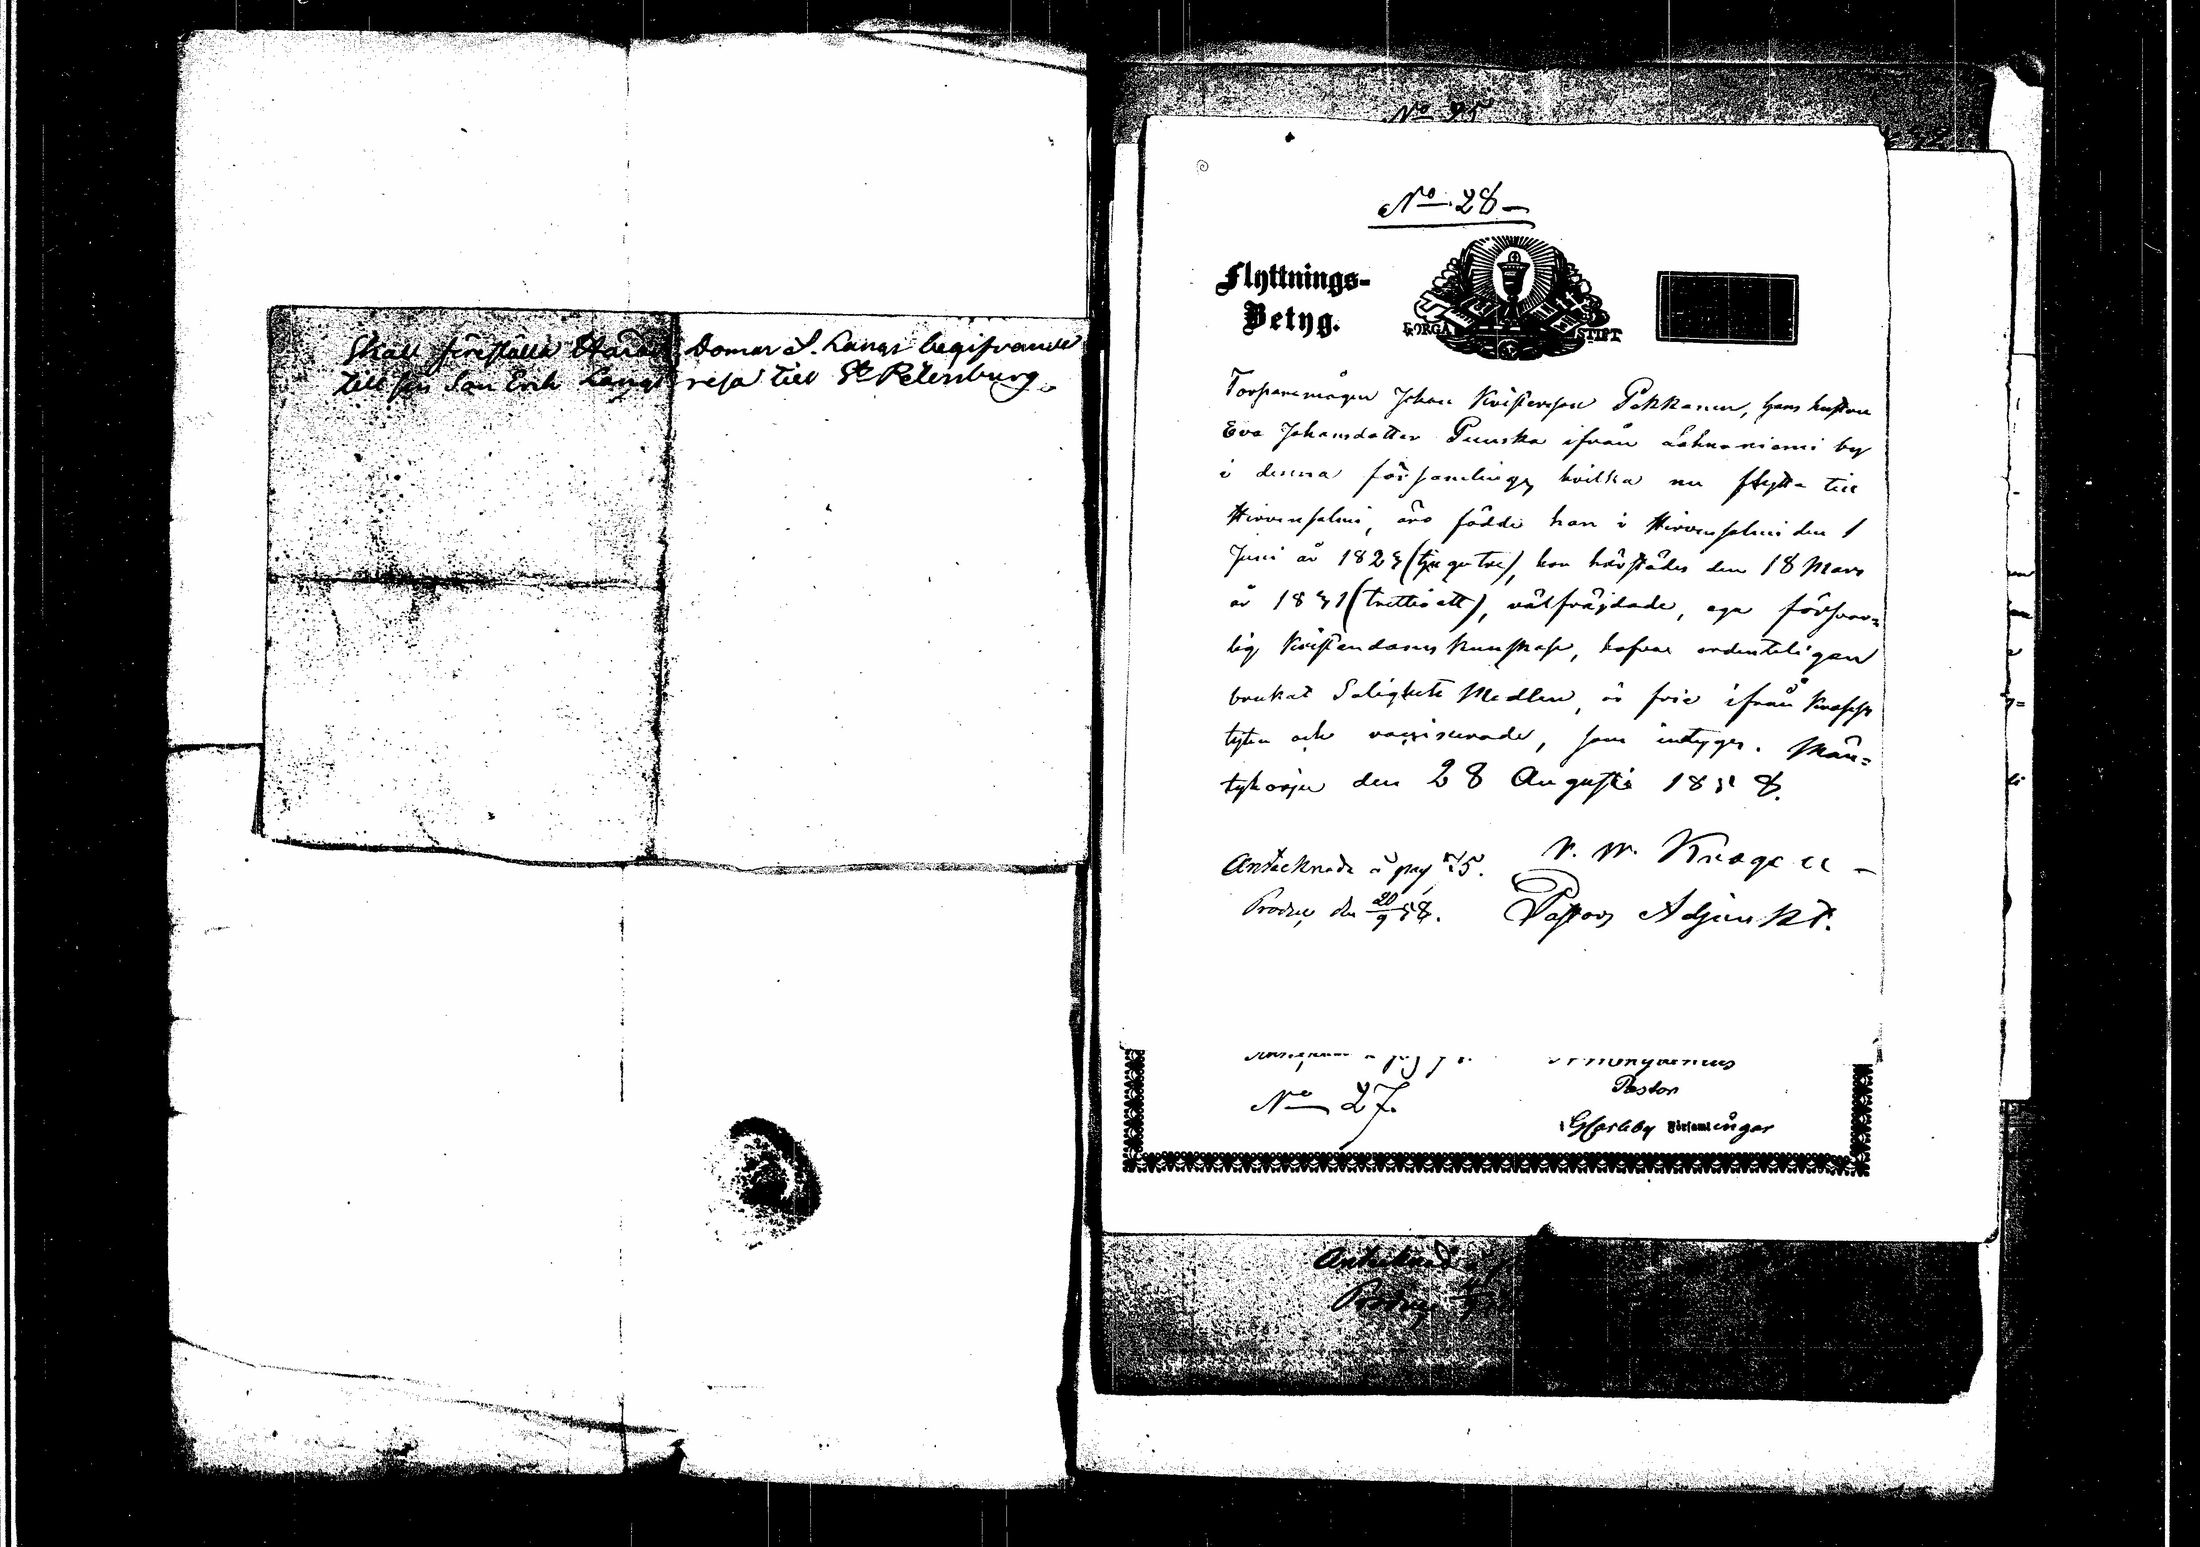 Skall föreställa Härads Domar J. Langs begifvande
till sin Son Erik Langs resa till St Petersburg.
No 25
No 28
Flyttnings-
Betyg.
BORGÅ STIFT
Torparemågen Johan Kristersson Pekkanen, hans hustru
Eva Johansdotter Puuska ifrån Lahnaniemi by
i denna församling, hvilka nu flytta till
Hirvensalmi, äro födde han i Hirvensalmi den 1
Juni år 1823 (tjugutre), hon härstädes den 18 Mars
år 1831 (trettioett), välfräjdade, ega försvar=
lig Kristendoms kunskap, hafva ordenteligen
brukat Salighets Medlen, är frie ifrån kropps
lyten och vaccinerade, som intygas. Män=
tyharju den 28 Augusti 1858.
Antecknade å pag 75.
Produc. den 20/9 58.
Pastors Adjunkt.
No 27.
Pastor
Församlingar
Antecknad